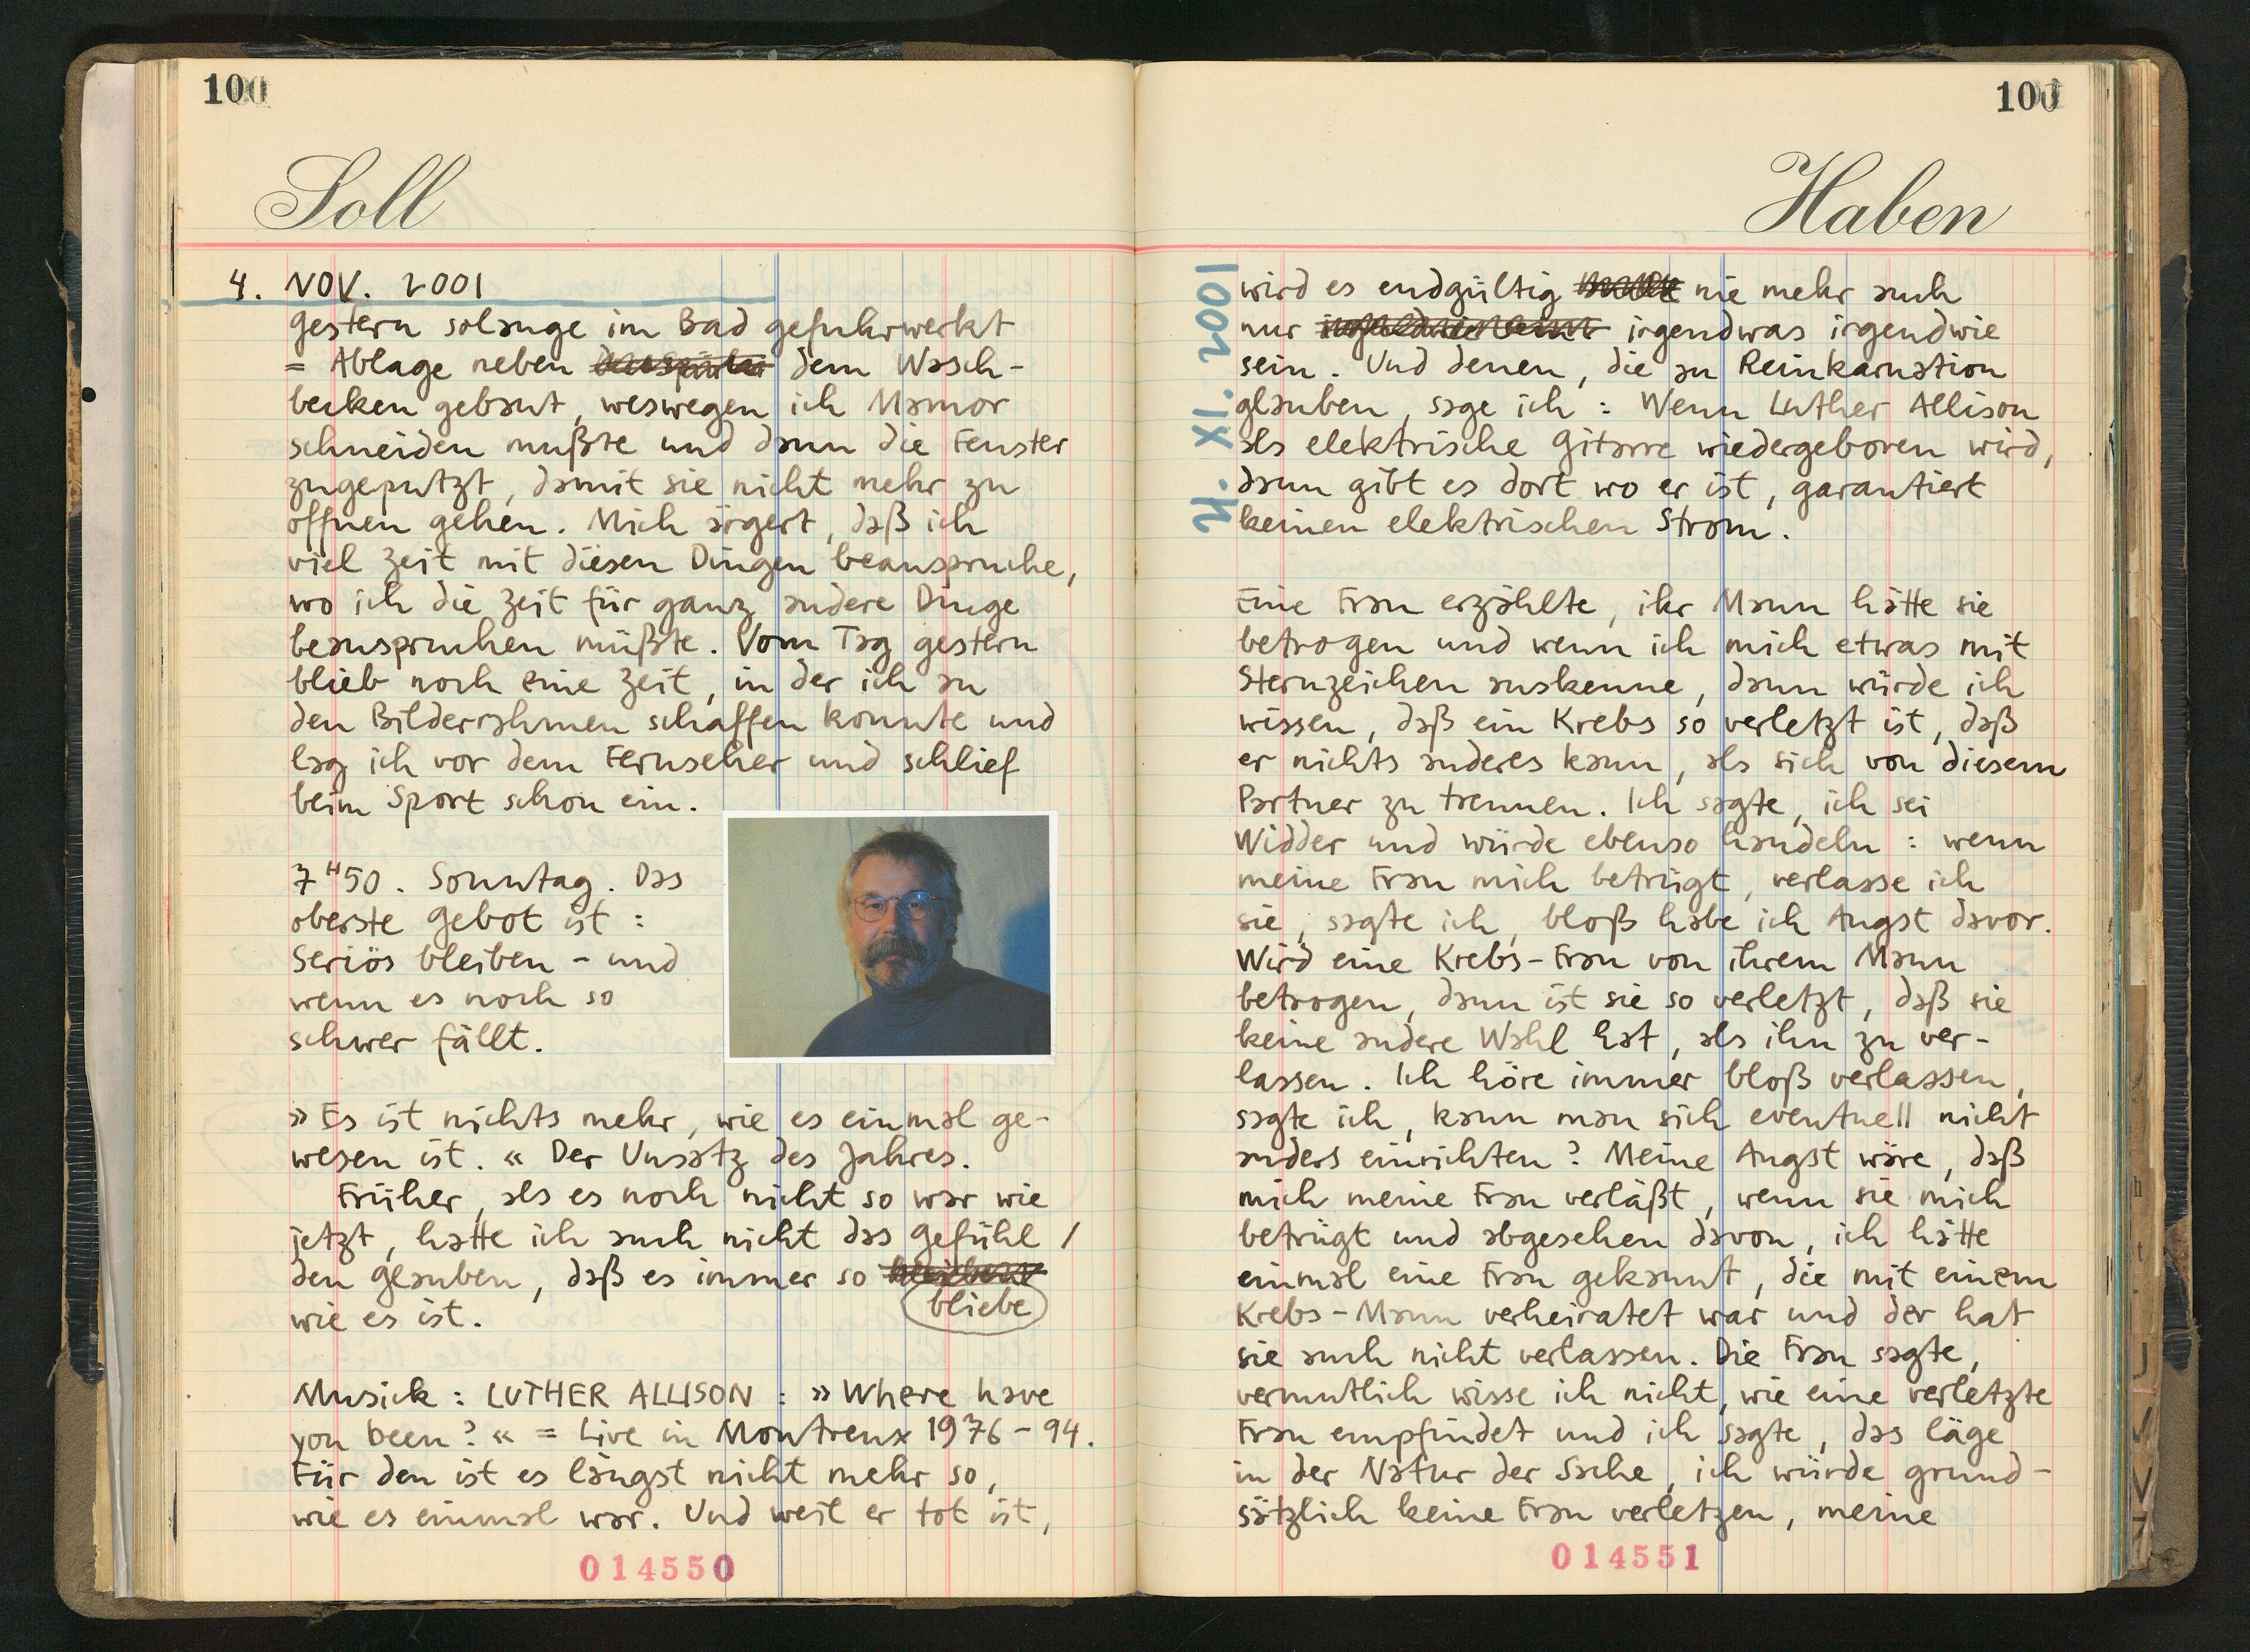 100
Soll
4. NOV. 2001
gestern solange im Bad gefuhrwerkt
= Ablage neben dem Wasch-
becken gebaut, weswegen ich Mamor
schneiden mußte und dann die Fenster
zugeputzt, damit sie nicht mehr zu
öffnen gehen. Mich ärgert, daß ich
viel Zeit mit diesen Dingen beanspruche,
wo ich die Zeit für ganz andere Dinge
beanspruchen müßte. Vom Tag gestern
blieb noch eine Zeit, in der ich an
den Bilderrahmen schaffen konnte und
lag ich vor dem Fernseher und schlief
beim Sport schon ein.
7 H 50. Sonntag. Das
oberste Gebot ist :
Seriös bleiben - und
wenn es noch so
schwer fällt.
» Es ist nichts mehr, wie es einmal ge-
wesen ist. « Der Unsatz des Jahres.
Früher, als es noch nicht so war wie
jetzt, hatte ich auch nicht das Gefühl /
den Glauben, daß es immer so
bliebe
wie es ist.
Musick : LUTHER ALLISON : » Where have
you been? « = Live in Montreux 1976 - 94.
Für den ist es längst nicht mehr so,
wie es einmal war. Und weil er tot ist,
014550
100
Haben
4. XI. 2001
wird es endgültig nie mehr auch
nur irgendwas irgendwie
sein. Und denen, die an Reinkarnation
glauben, sage ich : Wenn Luther Allison
als elektrische Gitarre wiedergeboren wird,
dann gibt es dort wo er ist, garantiert
keinen elektrischen Strom.
Eine Frau erzählte, ihr Mann hätte sie
betrogen und wenn ich mich etwas mit
Sternzeichen auskenne, dann würde ich
wissen, daß ein Krebs so verletzt ist, daß
er nichts anderes kann, als sich von diesem
Partner zu trennen. Ich sagte, ich sei
Widder und würde ebenso handeln : wenn
meine Frau mich betrügt, verlasse ich
sie, sagte ich, bloß habe ich Angst davor.
Wird eine Krebs-Frau von ihrem Mann
betrogen, dann ist sie so verletzt, daß sie
keine andere Wahl hat, als ihn zu ver-
lassen. Ich höre immer bloß verlassen,
sagte ich, kann man sich eventuell nicht
anders einrichten? Meine Angst wäre, daß
mich meine Frau verläßt, wenn sie mich
betrügt und abgesehen davon, ich hätte
einmal eine Frau gekannt, die mit einem
Krebs-Mann verheiratet war und der hat
sie auch nicht verlassen. Die Frau sagte,
vermutlich wisse ich nicht, wie eine verletzte
Frau empfindet und ich sagte, das läge
in der Natur der Sache, ich würde grund-
sätzlich keine Frau verletzen, meine
014551